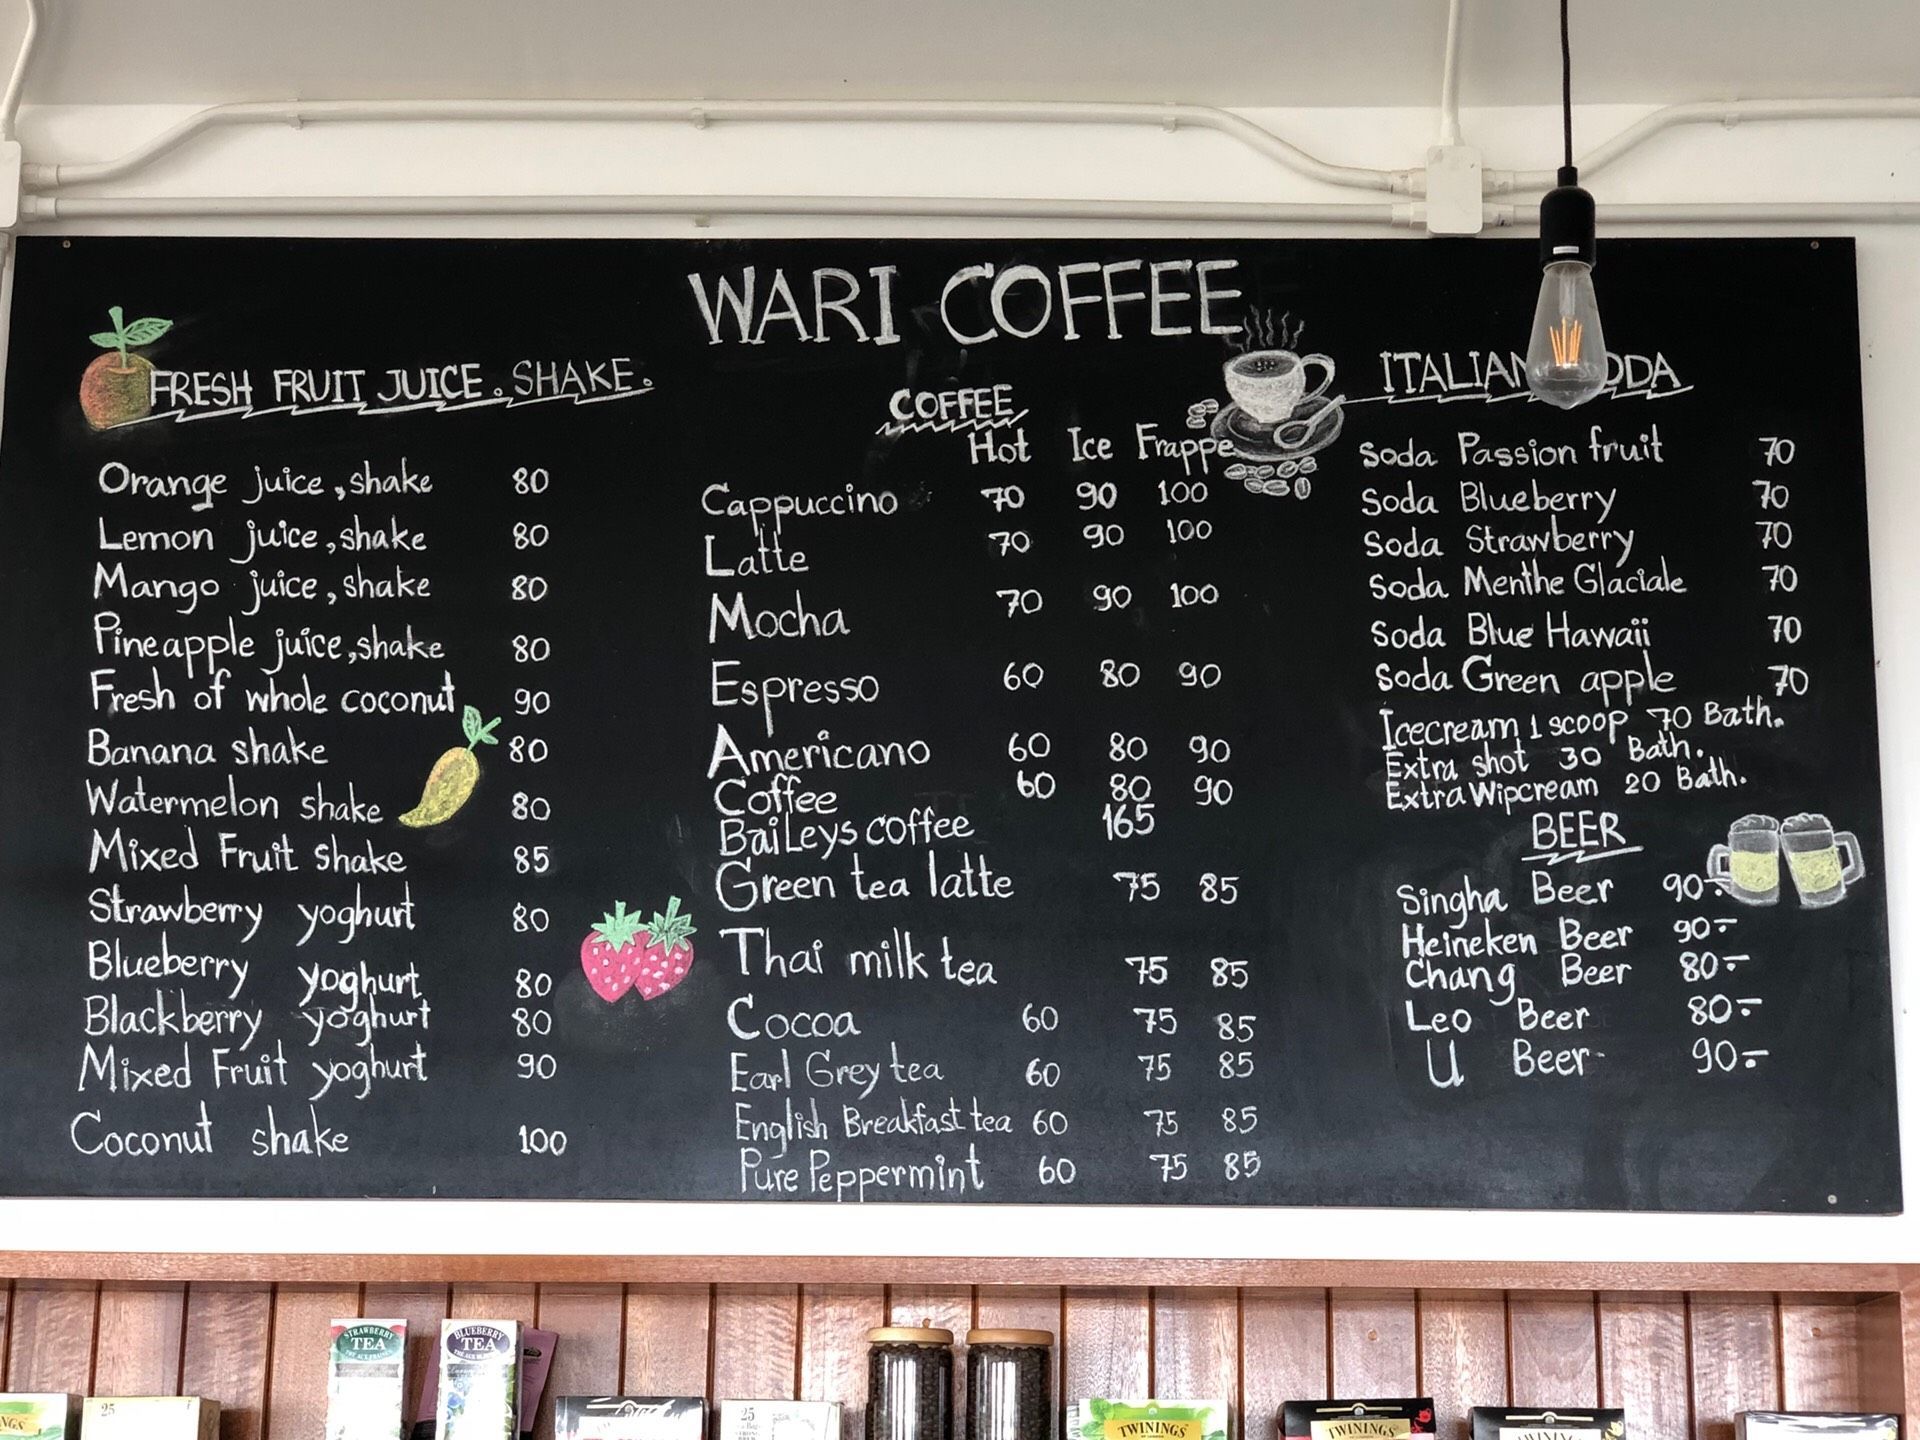 WARI COFFEE
FRESH FRUIT JUICE. SHAKE.
Orange juice, shake 80
Lemon juice, shake 80
Mango juice, shake 80
Pineapple juice, shake 80
Fresh of whole coconut 90
Banana shake 80
Watermelon shake 80
Mixed Fruit shake 85
Strawberry yoghurt 80
Blueberry yoghurt 80
Blackberry yoghurt 80
Mixed Fruit yoghurt 90
Coconut shake 100
COFFEE
Hot Ice Frappe
Cappuccino 70 90 100
Latte 70 90 100
Mocha 70 90 100
Espresso 60 80 90
Americano 60 80 90
Coffee 60 80 90
Baileys coffee 165
Green tea latte 75 85
Thai milk tea 75 85
Cocoa 60 75 85
Earl Grey tea 60 75 85
English Breakfast tea 60 75 85
Pure Peppermint 60 75 85
ITALIAN ODA
Soda Passion fruit 70
Soda Blueberry 70
Soda Strawberry 70
Soda Menthe Glaciale 70
Soda Blue Hawaii 70
Soda Green apple 70
Icecream 1 scoop 70 Bath.
Extra shot 30 Bath.
Extra Wipcream 20 Bath.
BEER
Singha Beer 90.-
Heineken Beer 90.-
Chang Beer 80.-
Leo Beer 80.-
U Beer 90.-
STRAWBERRY
TEA
BLUEBERRY
TEA
25
25
TWININGS
TWININGS